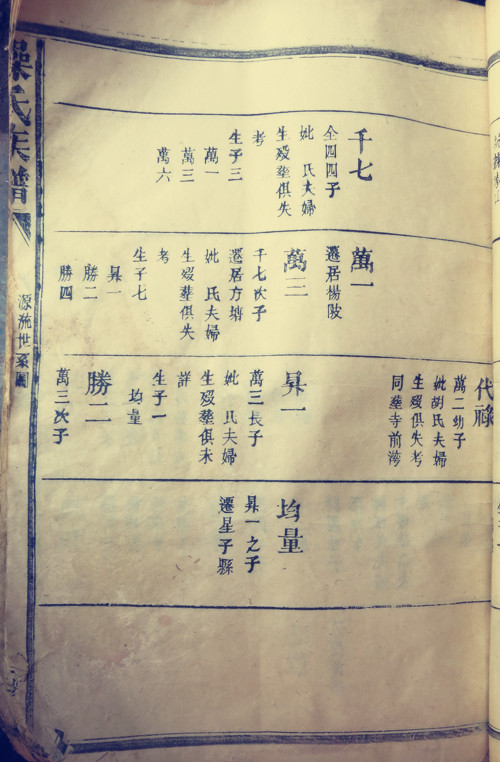 千七
全四四子
妣　氏夫婦
生歿塟俱失
考
生子三
萬一
萬三
萬六
萬一
遷居楊陂
萬三
千七次子
遷居方塘
妣　氏夫婦
生歿塟俱失
考
生子七
昇一
勝二
勝四
代祿
萬二幼子
妣胡氏夫婦
生歿俱失考
同塟寺前灣
昇一
萬三長子
妣　氏夫婦
生歿塟俱未
詳
生子一
均量
勝二
萬三次子
均量
昇一之子
遷星子縣
氏族譜
源流世系圖